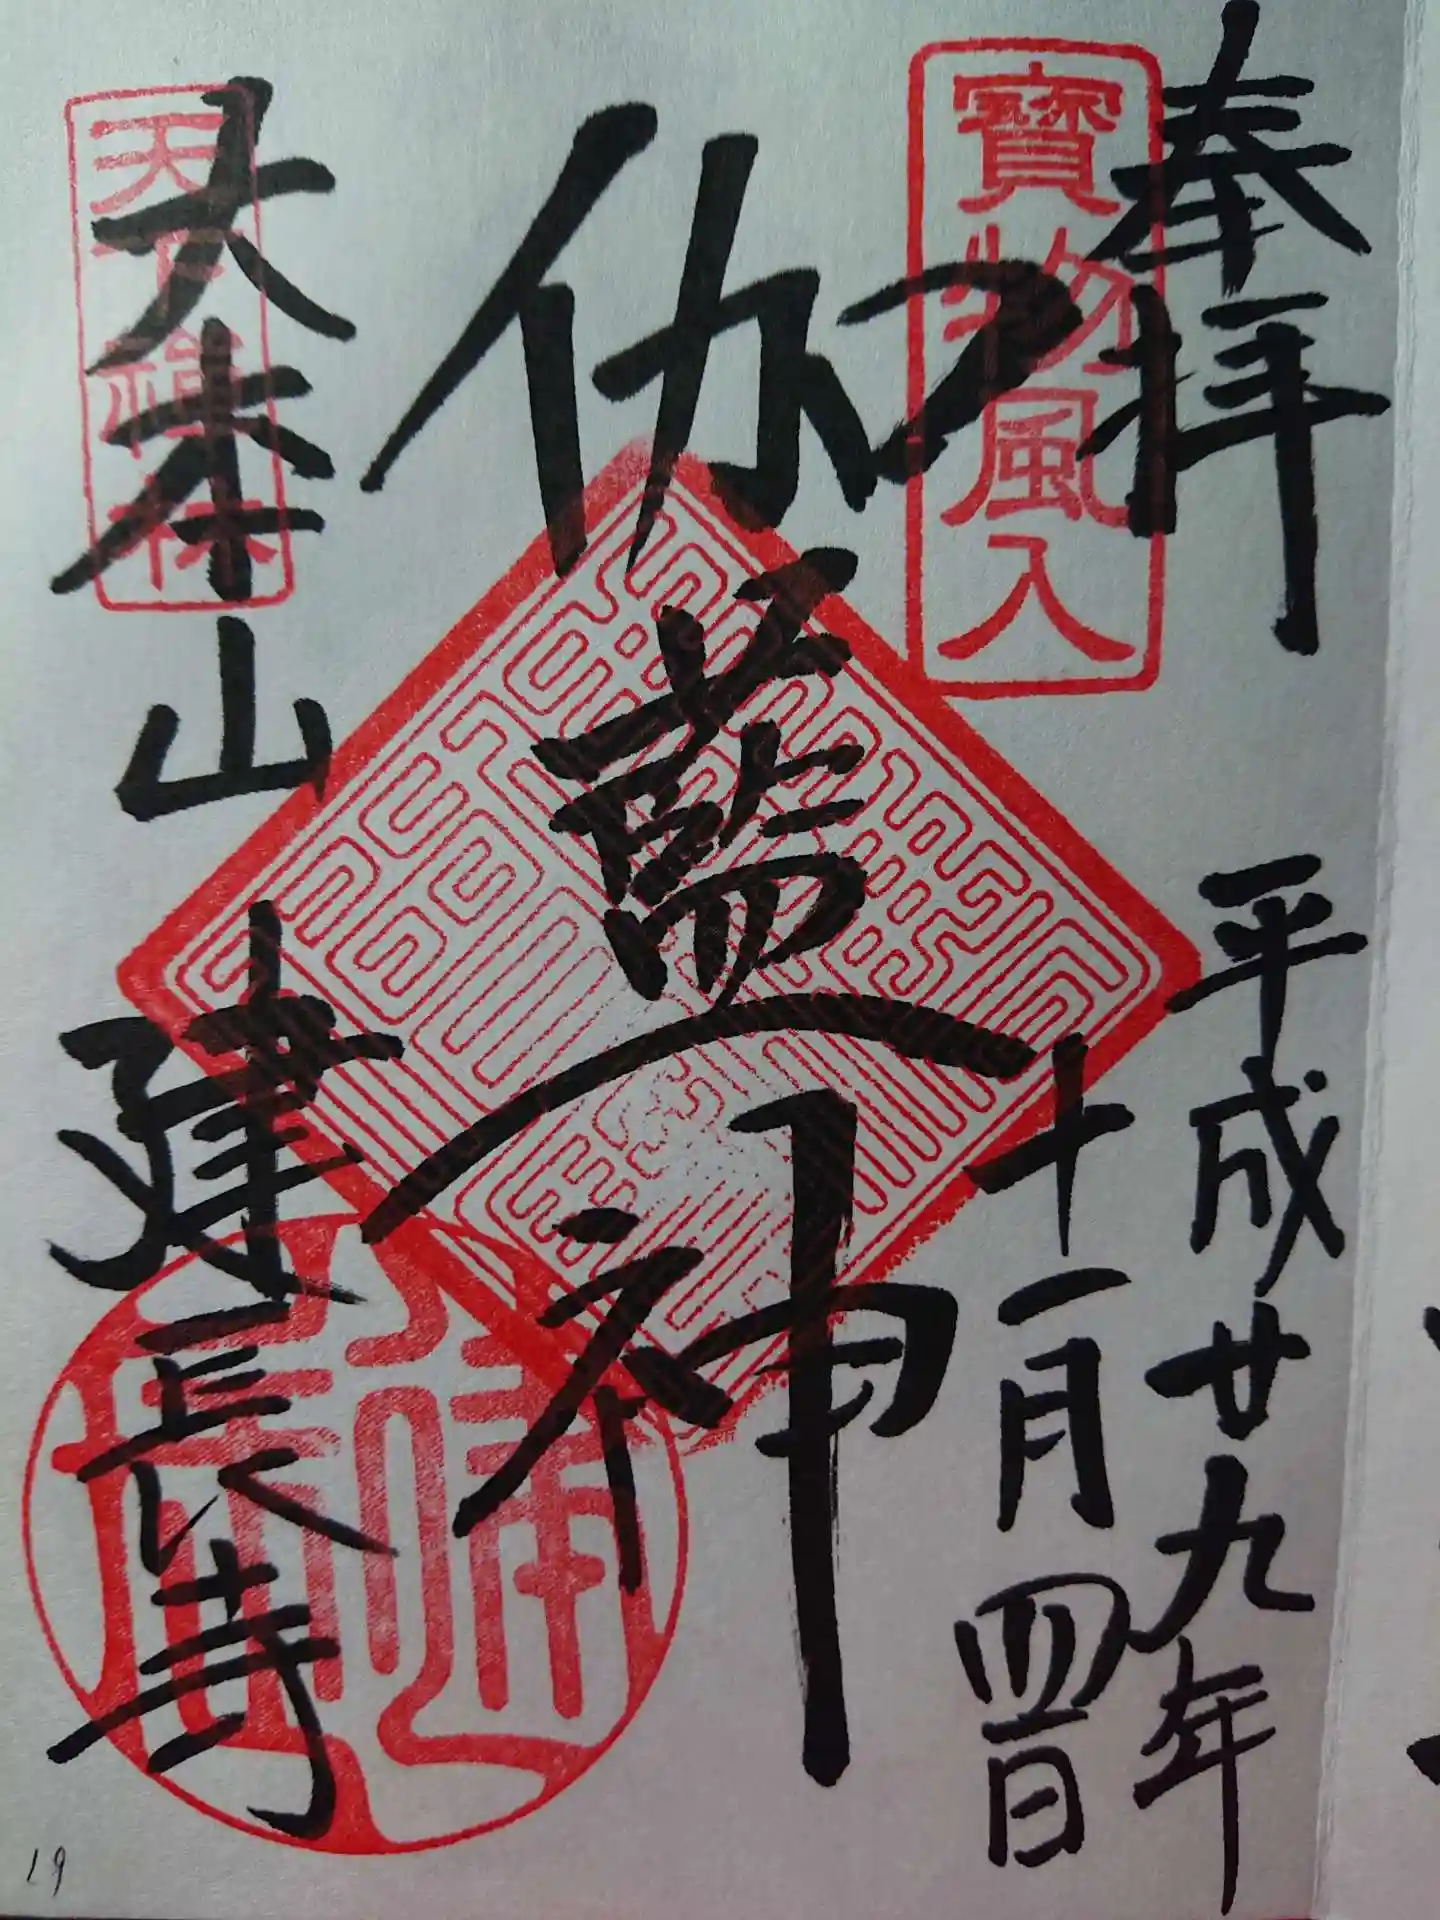 奉拝
平成廿九年
十一月四日
寶物風入
伽藍神
天下禅林
大本山
建長寺
19